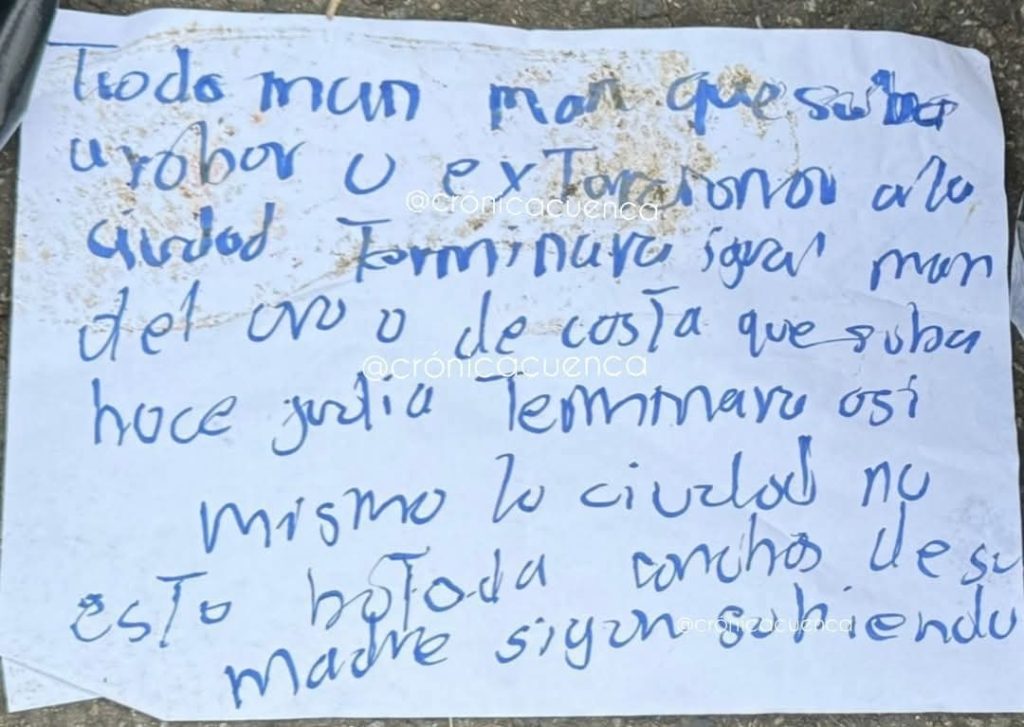 todo man man que suba
a robar o extorsionar a la
@crónicacuenca
ciudad terminara igual man
del oro o de costa que suba
@crónicacuenca
hace judia terminara asi
mismo la ciudad no
esta botada conchas de su
@crónicacuenca
madre sigan subiendo